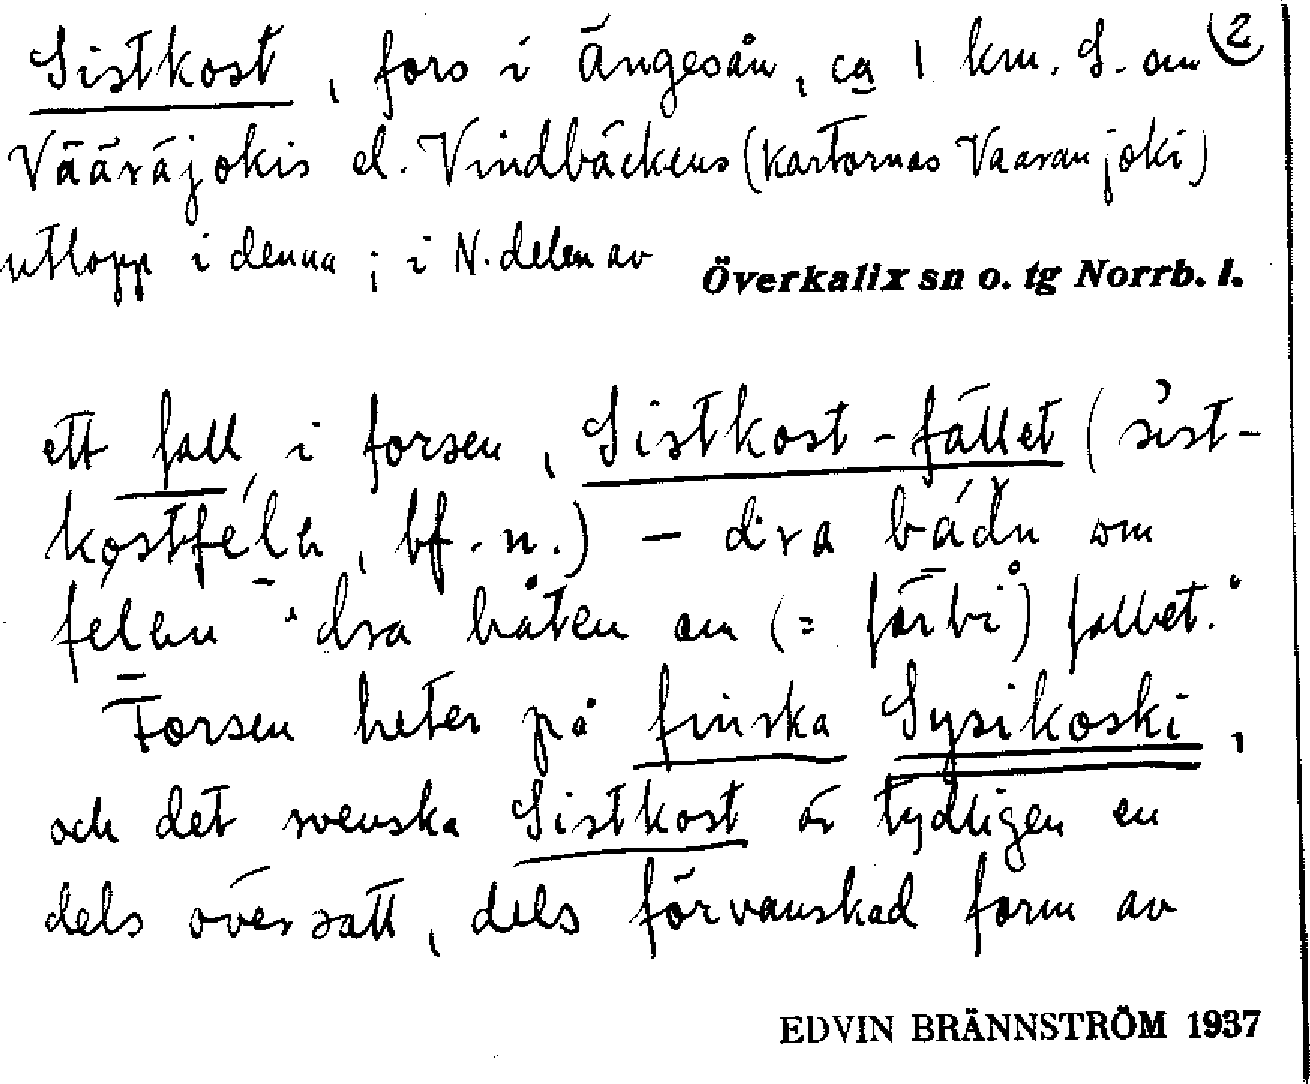 Sistkost, fors i Ängesån, ca 1 km. S. om 2
Vääräjokis el. Vindbäckens (kartornas Vaaranjoki)
utlopp i denna; i N. delen av Överkalix sn o. tg Norrb. l.
ett fall i forsen, Sistkost-fället (sist-
kostfeln, bf. n.) – dra bådn om
felen "dra båten om (= förbi) fallet."
Forsen heter på finska Sysikoski,
och det svenska Sistkost är tydligen en
dels översatt, dels förvanskad form av
EDVIN BRÄNNSTRÖM 1937